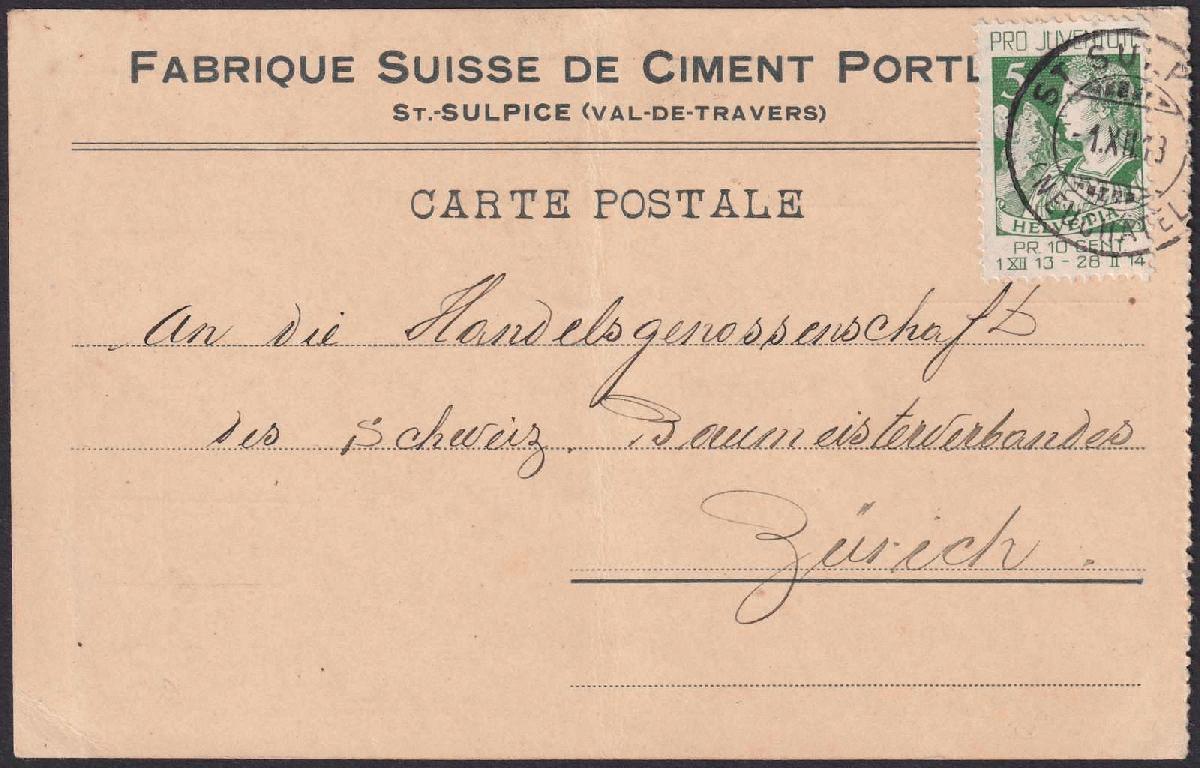 FABRIQUE SUISSE DE CIMENT PORTL
ST.-SULPICE (VAL-DE-TRAVERS)
CARTE POSTALE
PRO JUVENTUTE
5
HELVETIA
PR. 10 CENT.
1 XII 13 - 28 II 14
ST SULP
-1.XII.13
(NEUCHATEL
An die Handelsgenossenschaft
des Schweiz. Baumeisterverbandes
Zürich.